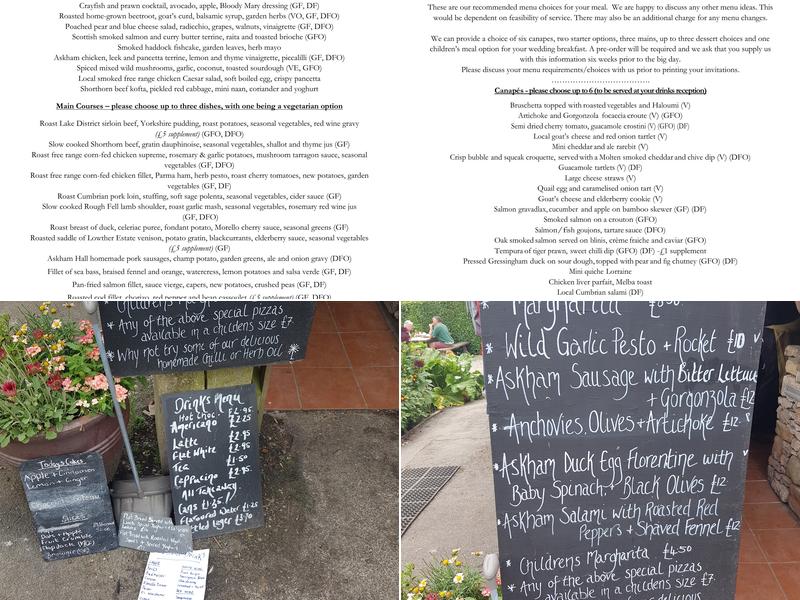 Crayfish and prawn cocktail, avocado, apple, Bloody Mary dressing (GF, DF)
Roasted home-grown beetroot, goat's curd, balsamic syrup, garden herbs (VO, GF, DFO)
Poached pear and blue cheese salad, radicchio, grapes, walnuts, vinaigrette (V, GFO)
Scottish smoked salmon and curry butter terrine, raita and toasted brioche (GFO)
Smoked haddock fishcake, garden leaves, herb mayo
Askham chicken, leek and pancetta terrine, lemon and thyme vinaigrette, piccalilli (GF, DF)
Spiced mixed wild mushrooms, garlic, coconut, toasted sourdough (VE, GFO)
Local smoked free range chicken Caesar salad, soft boiled egg, crispy pancetta
Shorthorn beef kofta, pickled red cabbage, mini naan, coriander and yoghurt
Main Courses – please choose up to three dishes, with one being a vegetarian option
Roast Lake District sirloin beef, Yorkshire pudding, roast potatoes, seasonal vegetables, red wine gravy
(£5 supplement) (GFO, DFO)
Slow cooked Shorthorn beef, gratin dauphinoise, seasonal vegetables, shallot and thyme jus (GF)
Roast free range corn-fed chicken supreme, rosemary & garlic potatoes, mushroom tarragon sauce, seasonal
vegetables (GF, DFO)
Roast free range corn-fed chicken fillet, Parma ham, herb pesto, roast cherry tomatoes, new potatoes, garden
vegetables (GF, DF)
Roast Cumbrian pork loin, stuffing, soft sage polenta, seasonal vegetables, cider sauce (GF)
Slow cooked Rough Fell lamb shoulder, roast garlic mash, seasonal vegetables, rosemary red wine jus
(GF, DFO)
Roast breast of duck, celeriac puree, fondant potato, Morello cherry sauce, seasonal greens (GF)
Roasted saddle of Lowther Estate venison, potato gratin, blackcurrants, elderberry sauce, seasonal vegetables
(£5 supplement) (GF)
Askham Hall homemade pork sausages, champ potato, garden greens, ale and onion gravy (DFO)
Fillet of sea bass, braised fennel and orange, watercress, lemon potatoes and salsa verde (GF, DF)
Pan-fried salmon fillet, sauce vierge, capers, new potatoes, crushed peas (GF, DF)
Roasted cod fillet, chorizo, red pepper and bean cassoulet (£5 supplement) (GF, DFO)
These are our recommended menu choices for your meal. We are happy to discuss any other menu ideas. This
would be dependent on feasibility of service. There may also be an additional charge for any menu changes.
We can provide a choice of six canapes, two starter options, three mains, up to three dessert choices and one
children's meal option for your wedding breakfast. A pre-order will be required and we ask that you supply us
with this information six weeks prior to the big day.
Please discuss your menu requirements/choices with us prior to printing your invitations.
Canapés - please choose up to 6 (to be served at your drinks reception)
Bruschetta topped with roasted vegetables and Haloumi (V)
Artichoke and Gorgonzola focaccia croute (V) (GFO)
Semi dried cherry tomato, guacamole crostini (V) (GFO) (DF)
Local goat's cheese and red onion tartlet (V)
Mini cheddar and ale rarebit (V)
Crisp bubble and squeak croquette, served with a Molten smoked cheddar and chive dip (V) (DFO)
Guacamole tartlets (V) (DF)
Large cheese straws (V)
Quail egg and caramelised onion tart (V)
Goat's cheese and elderberry cookie (V)
Salmon gravadlax, cucumber and apple on bamboo skewer (GF) (DF)
Smoked salmon on a crouton (GFO)
Salmon/fish goujons, tartare sauce (DFO)
Oak smoked salmon served on blinis, crème fraiche and caviar (GFO)
Tempura of tiger prawn, sweet chilli dip (GFO) (DF) -£1 supplement
Pressed Gressingham duck on sour dough, topped with pear and fig chutney (GFO) (DF)
Mini quiche Lorraine
Chicken liver parfait, Melba toast
Local Cumbrian salami (DF)
Childrens
* Any of the above special pizzas
available in a childens size £7
* Why not try some of our delicious
homemade Chilli or Herb Oil *
Drinks Menu
Hot Choc. £2.95
Americano £2.25
Latte £2.95
Flat White £2.95
Tea £1.50
Cappuccino £2.95
All Takeaway
Cans £1.35
Flavoured Water £1.25
Todays Cakes
Apple + Cinnamon
Lemon + Ginger
Date + Apple
Fruit Crumble
Margherita
* Wild Garlic Pesto + Rocket £10 v
* Askham Sausage with Bitter Lettuce
+ Gorgonzola £12
* Anchovies, Olives + Artichoke £12
* Askham Duck Egg Florentine with v
Baby Spinach + Black Olives £12
* Askham Salami with Roasted Red
Peppers + Shaved Fennel £12
* Childrens Margarita £4.50
* Any of the above special pizzas
available in a childens size £7.
delicious